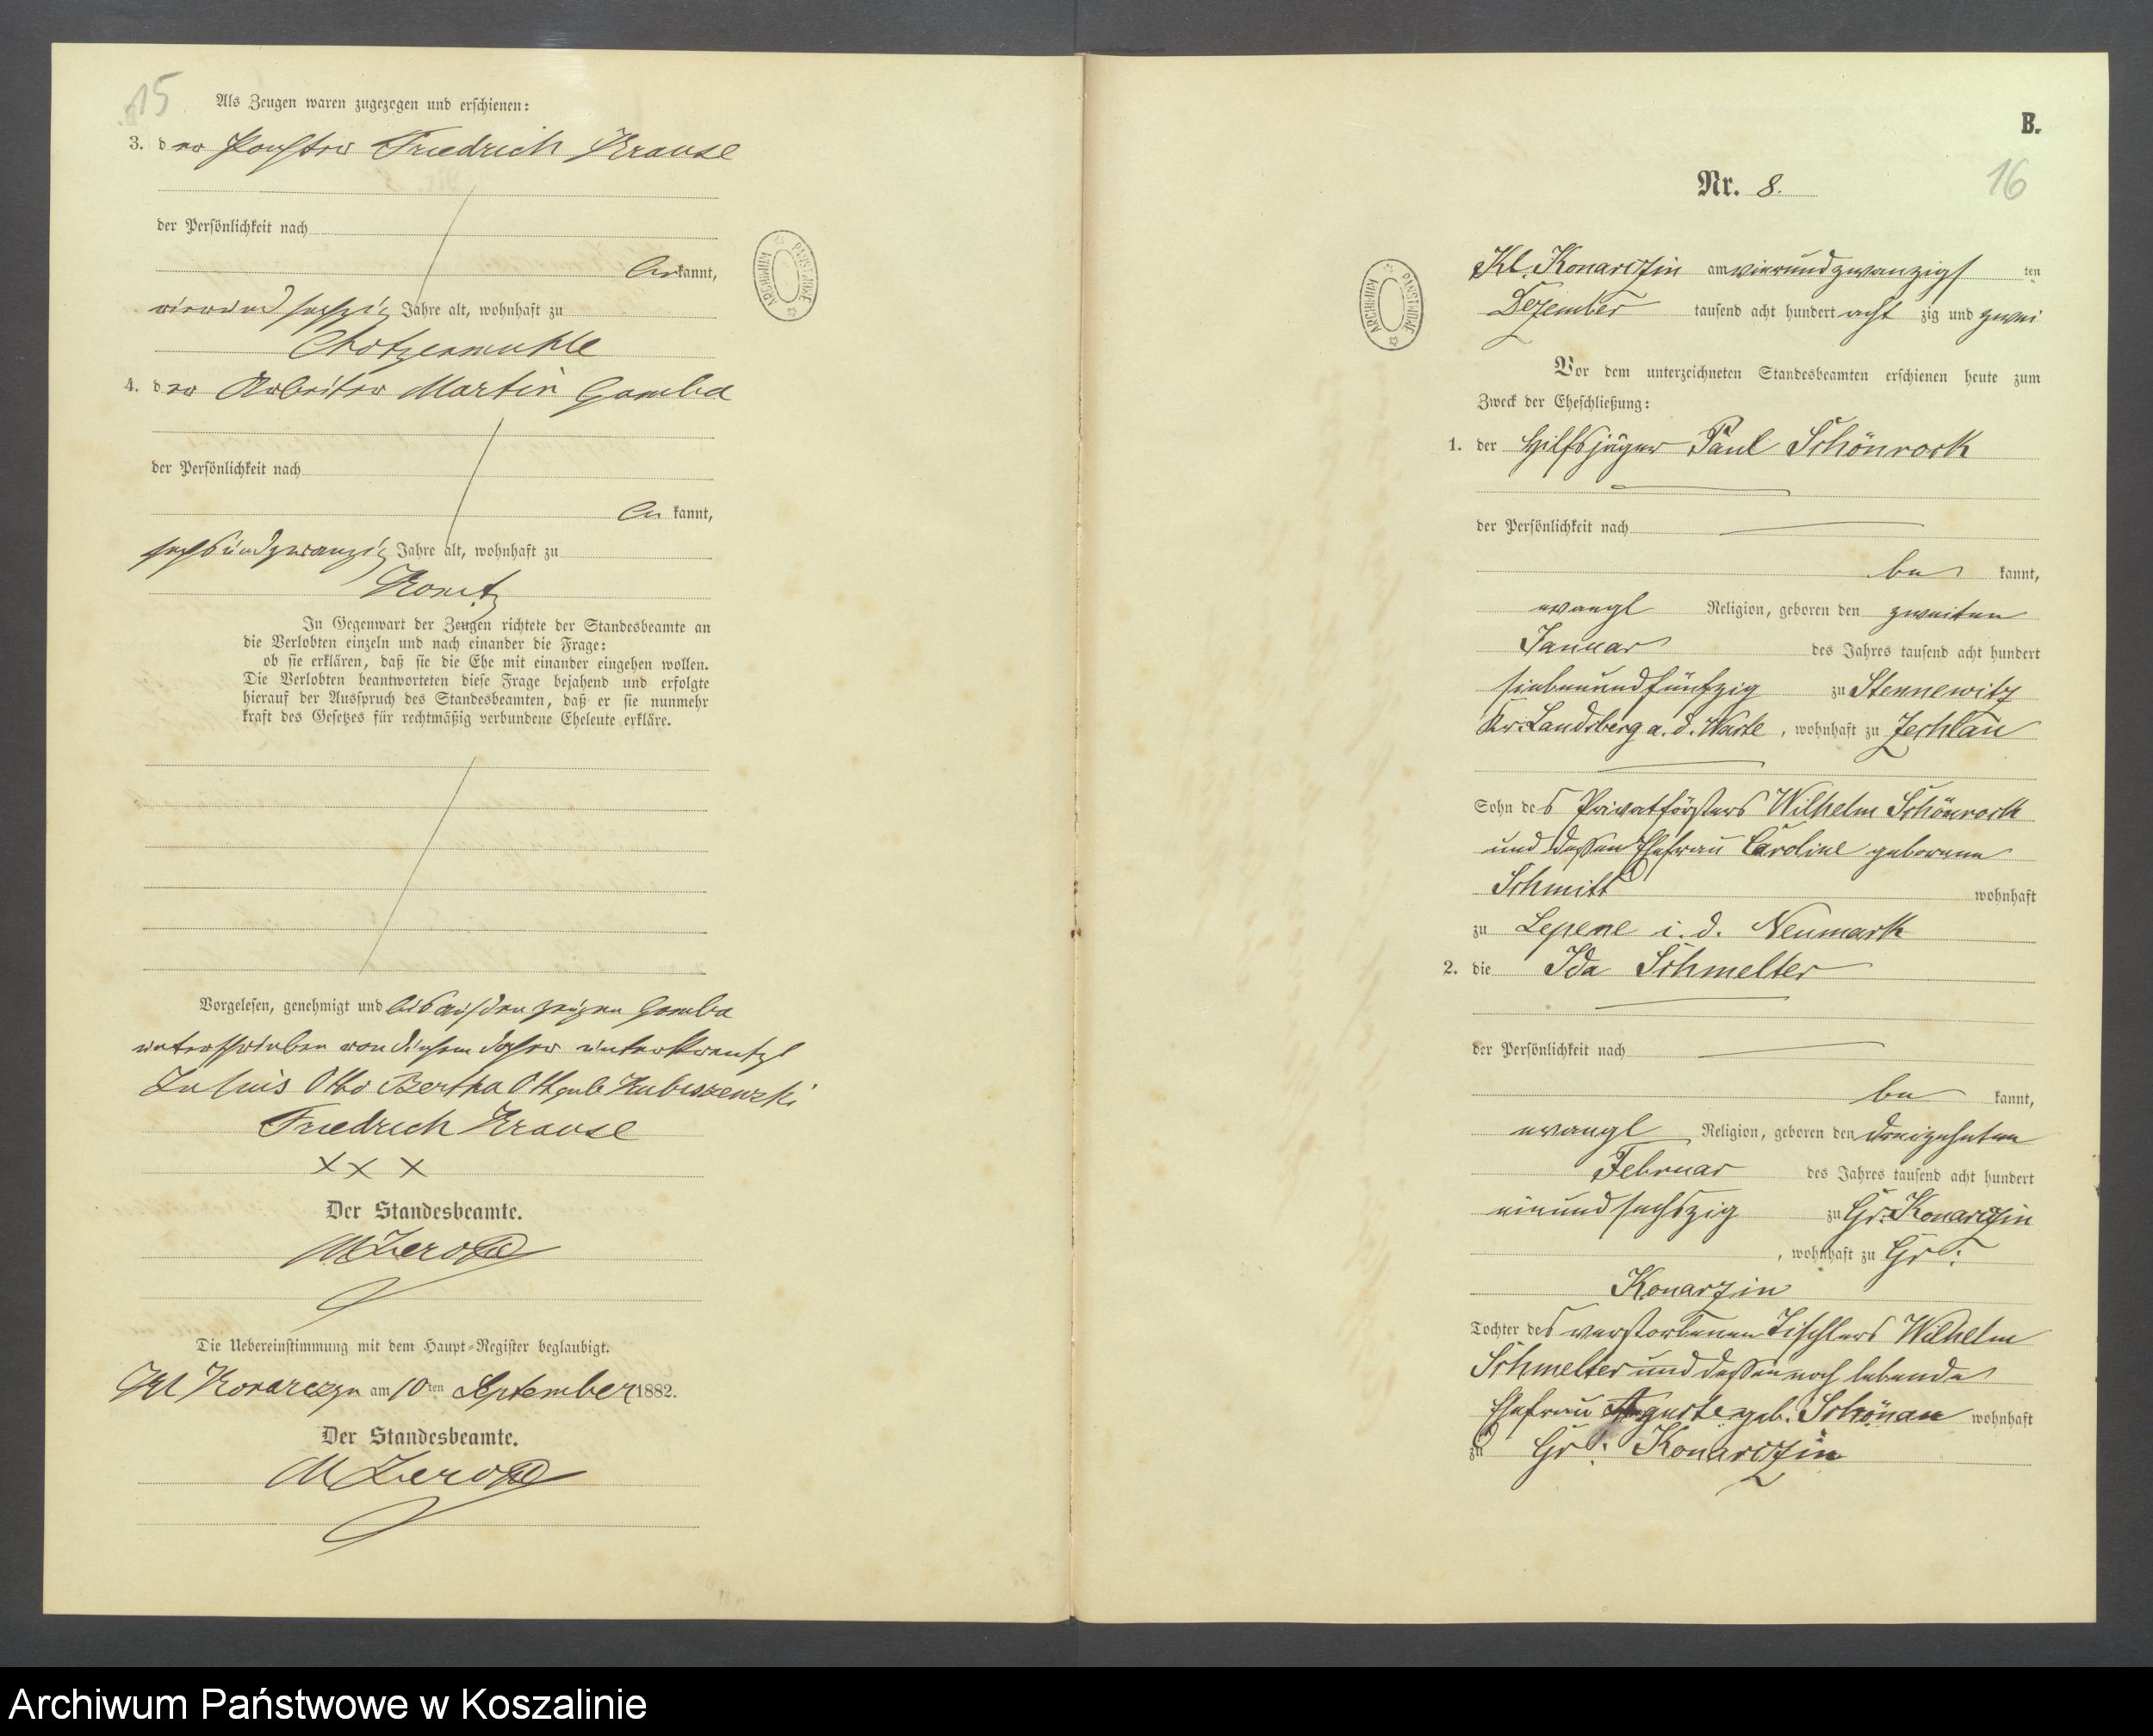 15
Als Zeugen waren zugezogen und erschienen:
3. der Förster Friedrich Krause
der Persönlichkeit nach
kannt,
vierundsechzig Jahre alt, wohnhaft zu
Chotzenmühle
4. der Arbeiter Martin Gamba
der Persönlichkeit nach
kannt,
sechsundzwanzig Jahre alt, wohnhaft zu
Konitz
In Gegenwart der Zeugen richtete der Standesbeamte an
die Verlobten einzeln und nach einander die Frage:
ob sie erklären, daß sie die Ehe mit einander eingehen wollen.
Die Verlobten beantworteten diese Frage bejahend und erfolgte
hierauf der Ausspruch des Standesbeamten, daß er sie nunmehr
kraft des Gesetzes für rechtmäßig verbundene Eheleute erkläre.
Vorgelesen, genehmigt und bis auf den Zeugen Gamba
unterschrieben von diesem daher unterkreuzt
Julius Otto Bertha Ott geb Kubiszewski
Friedrich Krause
x x x
Der Standesbeamte.
Die Uebereinstimmung mit dem Haupt-Register beglaubigt.
Kl Konarczyn am 10ten September 1882.
Der Standesbeamte.
ARCHIWUM PAŃSTWOWE
B.
16
Nr. 8.
Kl. Konarczin am vierundzwanzigs ten
Dezember tausend acht hundert acht zig und zwei
Vor dem unterzeichneten Standesbeamten erschienen heute zum
Zweck der Eheschließung:
1. der Hilfsjäger Paul Schönrock
der Persönlichkeit nach
be kannt,
evangl Religion, geboren den zweiten
Januar des Jahres tausend acht hundert
siebenundfünfzig zu Stennewitz
Kr. Landsberg a. d. Warte, wohnhaft zu Zechlau
Sohn des Privatförsters Wilhelm Schönrock
und dessen Ehefrau Caroline geborene
Schmitt wohnhaft
zu Lepene i. d. Neumark
2. die Ida Schmelter
der Persönlichkeit nach
be kannt,
evangl Religion, geboren den dreizehnten
Februar des Jahres tausend acht hundert
einundsechszig zu Gr. Konarczin
, wohnhaft zu Gr.
Konarzin
Tochter des verstorbenen Tischlers Wilhelm
Schmelter und dessen noch lebende
Ehefrau Auguste geb. Schönau wohnhaft
zu Gr. Konarczin
ARCHIWUM PAŃSTWOWE
Archiwum Państwowe w Koszalinie